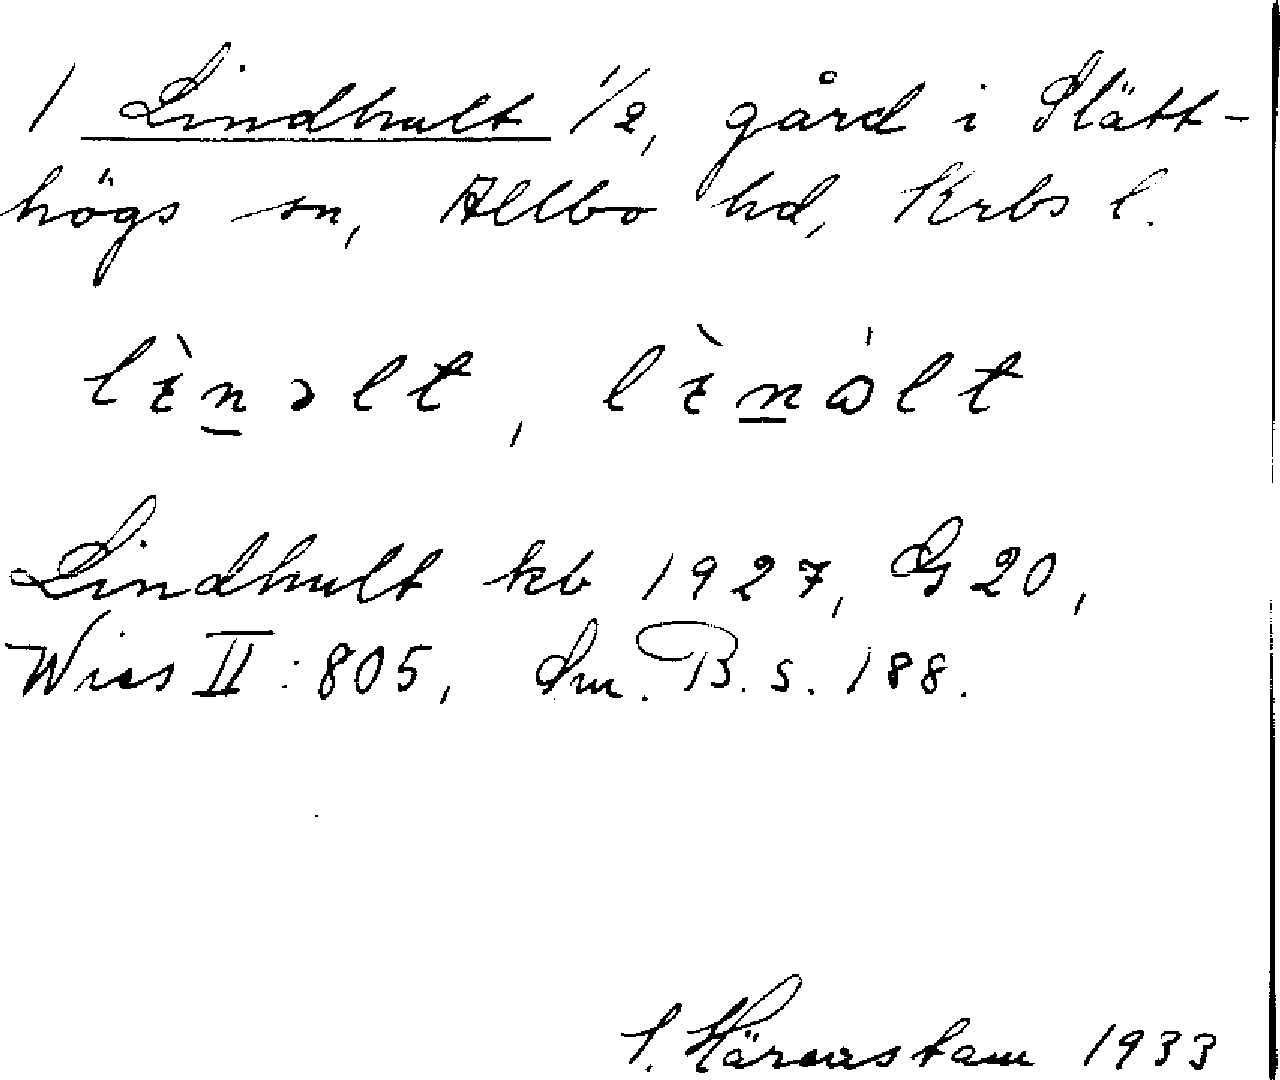 1 Lindhult 1/2, gård i Slätt-
högs sn, Allbo hd, Krbs l.
lìn̲əlt, lìn̲ólt
Lindhult kb 1927, G 20,
Wies II: 805, Sm. B. s. 188.
1933